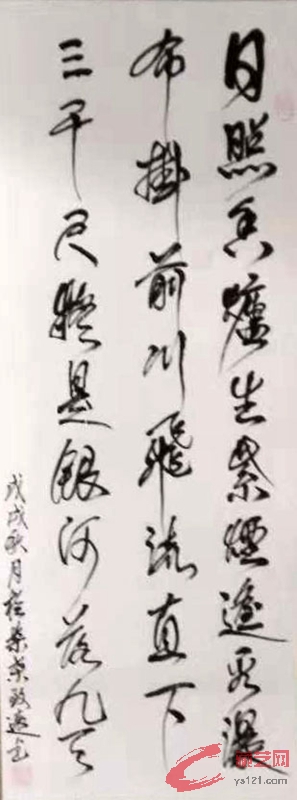 日照香爐生紫煙遙看瀑
布掛前川飛流直下
三千尺疑是銀河落九天
戊戌秋月
ys121.com